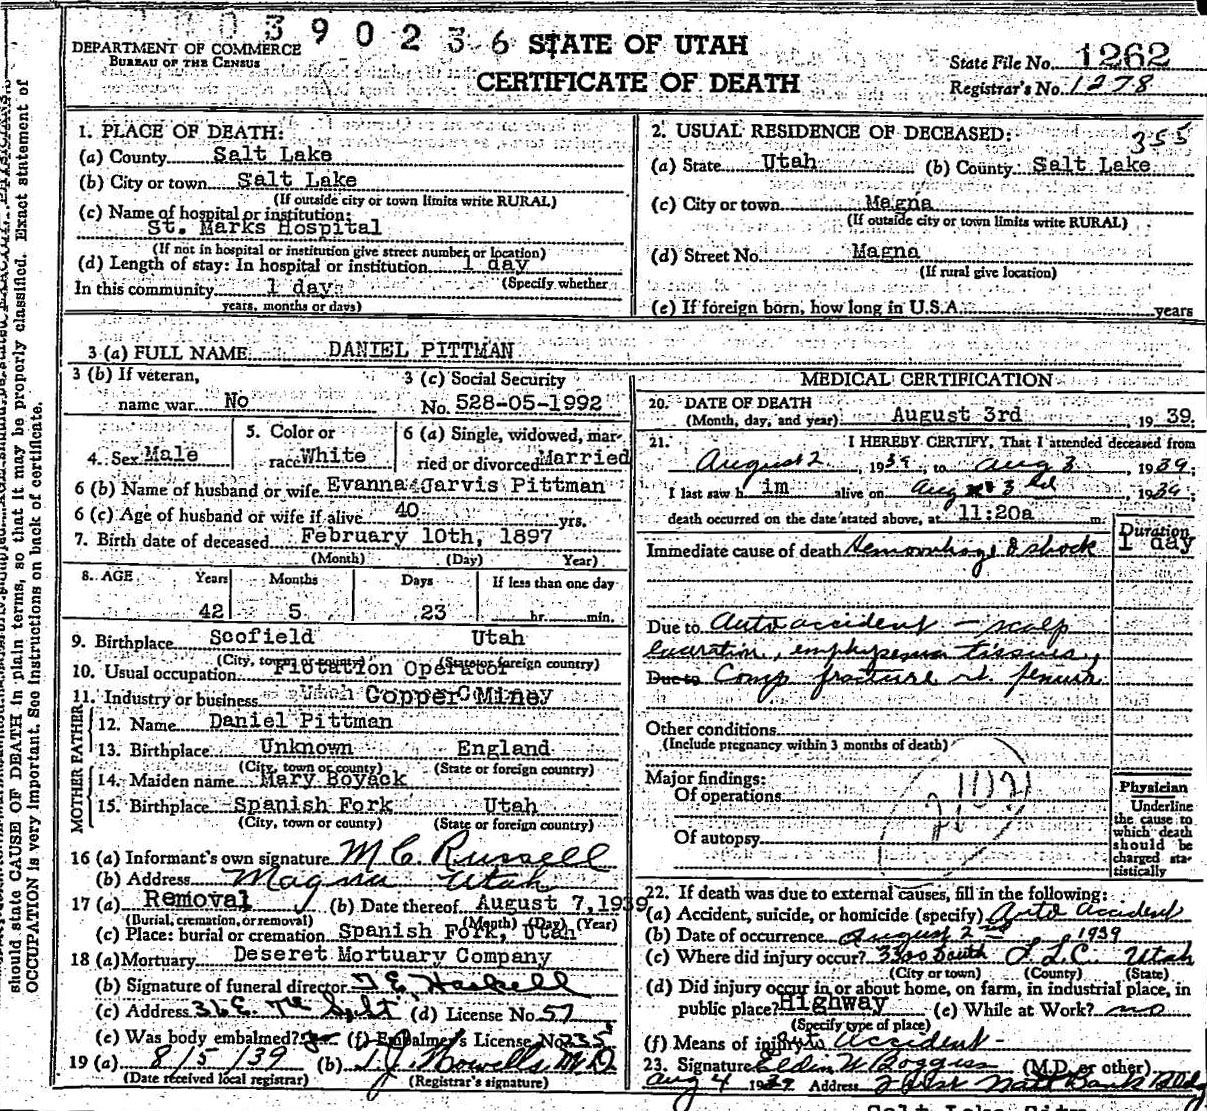 039023 6 STATE OF UTAH
DEPARTMENT OF COMMERCE
BUREAU OF THE CENSUS
CERTIFICATE OF DEATH
State File No. 1262
Registrar's No. 1278
should state CAUSE OF DEATH in plain terms, so that it may be properly classified. Exact statement of
OCCUPATION is very important. See instructions on back of certificate.
1. PLACE OF DEATH:
(a) County Salt Lake
(b) City or town Salt Lake
(If outside city or town limits write RURAL)
(c) Name of hospital or institution:
St. Marks Hospital
(If not in hospital or institution give street number or location)
(d) Length of stay: In hospital or institution 1 day
(Specify whether
In this community 1 day
years, months or days)
2. USUAL RESIDENCE OF DECEASED: 355
(a) State Utah (b) County Salt Lake
(c) City or town Magna
(If outside city or town limits write RURAL)
(d) Street No. Magna
(If rural give location)
(e) If foreign born, how long in U.S.A. years
3 (a) FULL NAME DANIEL PITTMAN
3 (b) If veteran,
name war No
3 (c) Social Security
No. 528-05-1992
4. Sex Male
5. Color or
race White
6 (a) Single, widowed, mar-
ried or divorced Married
6 (b) Name of husband or wife Evanna Jarvis Pittman
6 (c) Age of husband or wife if alive 40 yrs.
7. Birth date of deceased February 10th, 1897
(Month) (Day) Year)
8. AGE Years Months Days If less than one day
42 5 23 hr. min.
9. Birthplace Scofield Utah
(City, town or county) (State or foreign country)
10. Usual occupation Flotation Operator
11. Industry or business Utah Copper Co Miney
FATHER
12. Name Daniel Pittman
13. Birthplace Unknown England
(City, town or county) (State or foreign country)
MOTHER
14. Maiden name Mary Boyack
15. Birthplace Spanish Fork Utah
(City, town or county) (State or foreign country)
16 (a) Informant's own signature M C. Russell
(b) Address Magna Utah
17 (a) Removal (b) Date thereof August 7, 1939
(Burial, cremation, or removal) (Month) (Day) (Year)
(c) Place: burial or cremation Spanish Fork, Utah
18 (a) Mortuary Deseret Mortuary Company
(b) Signature of funeral director Haskell
(c) Address 36 E. 7th (d) License No. 57
(e) Was body embalmed? (f) Embalmer's License No. 235
19 (a) 8/5/39 (b) Howells M.D.
(Date received local registrar) (Registrar's signature)
MEDICAL CERTIFICATION
20. DATE OF DEATH
(Month, day, and year) August 3rd 19 39.
21. I HEREBY CERTIFY, That I attended deceased from
August 2, 1939, to Aug 3, 1939;
I last saw h im alive on Aug 3rd, 1939;
death occurred on the date stated above, at 11:20a m.
Duration
Immediate cause of death Hemorrhage & shock 1 day
Due to Auto accident - scalp
laceration, emphysema tissues,
Due to Comp fracture rt femur
Other conditions
(Include pregnancy within 3 months of death)
Major findings:
Of operations
Of autopsy
Physician
Underline
the cause to
which death
should be
charged sta-
tistically
22. If death was due to external causes, fill in the following:
(a) Accident, suicide, or homicide (specify) Auto Accident
(b) Date of occurrence August 2nd 1939
(c) Where did injury occur? 3300 South S.L.C. Utah
(City or town) (County) (State)
(d) Did injury occur in or about home, on farm, in industrial place, in
public place? Highway (e) While at Work? no
(Specify type of place)
(f) Means of injury Auto Accident -
23. Signature Eldin W Boggess (M.D. or other)
Aug 4 1939 Address First Natl Bank Bldg
Salt Lake City